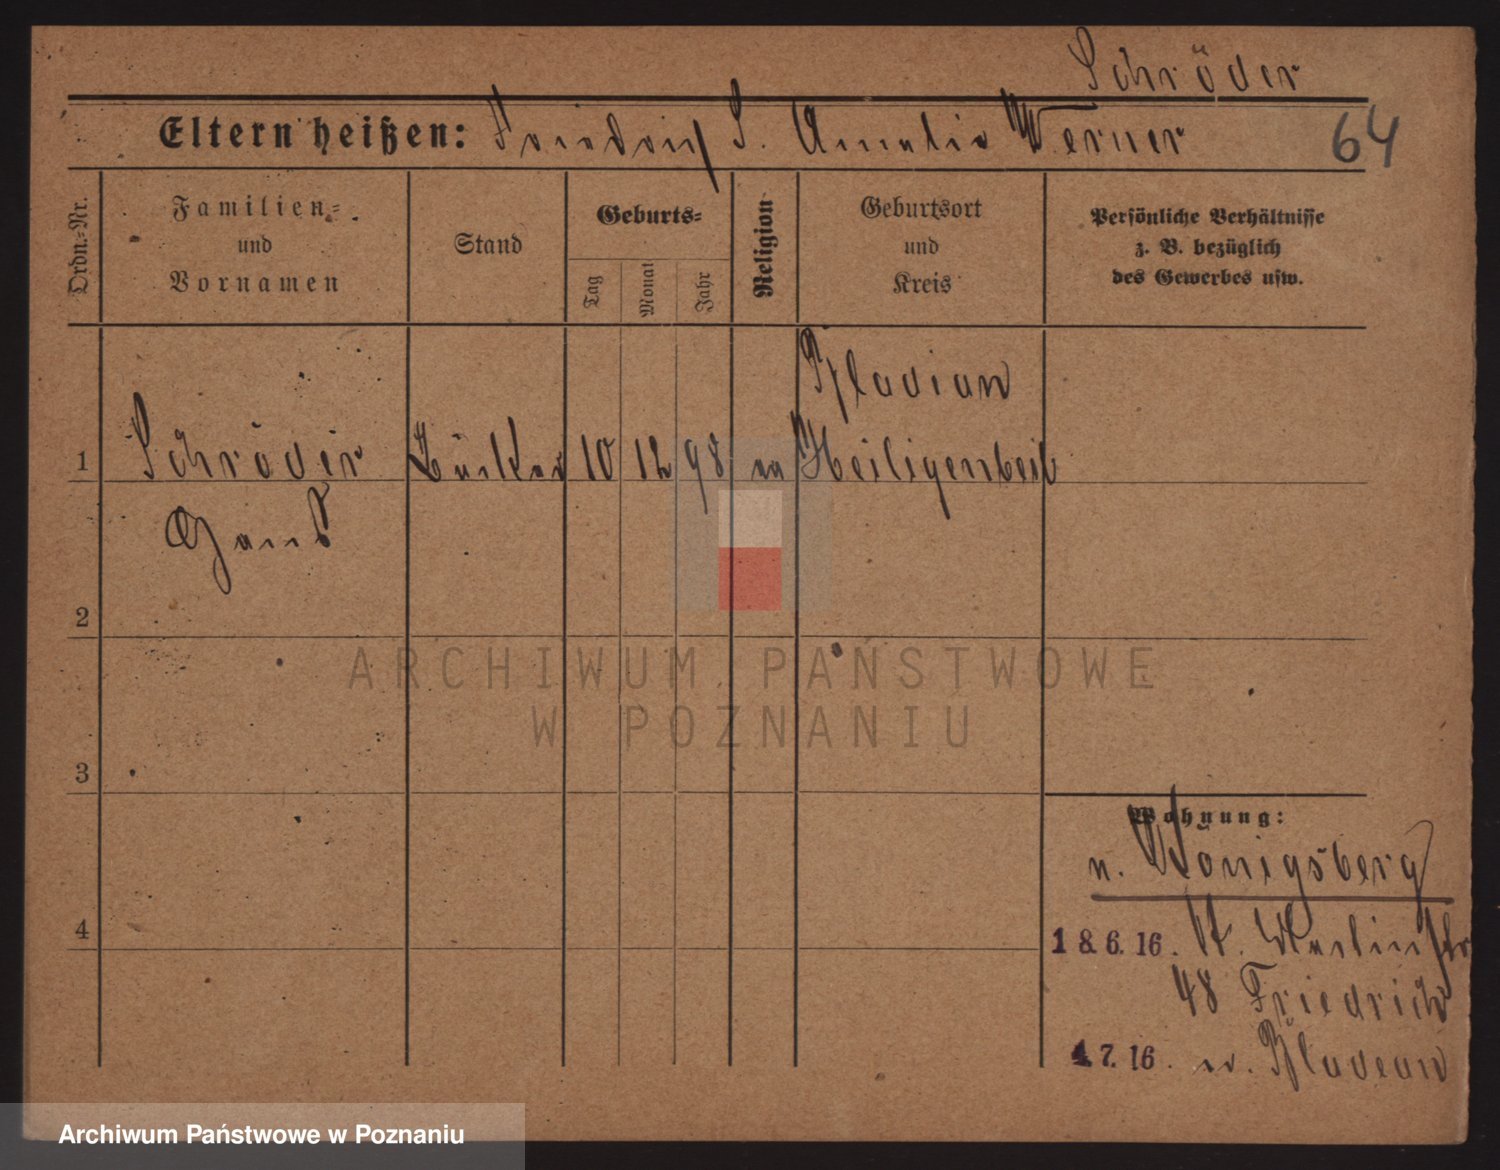 Schröder
Eltern heißen: Friedrich S. Amalie Werner
64
Ordn.-Nr.
Familien-
und
Vornamen
Stand
Geburts-
Tag
Monat
Jahr
Religion
Geburtsort
und
Kreis
Persönliche Verhältnisse
z. B. bezüglich
des Gewerbes usw.
1
Schröder
Bäcker
10
12
98
ev
Heiligenbeil
2
3
4
Wohnung:
n. Königsberg
18.6.16. St. Martinstr
48 Friedrich
4.7.16.
ARCHIWUM PAŃSTWOWE
W POZNANIU
Archiwum Państwowe w Poznaniu